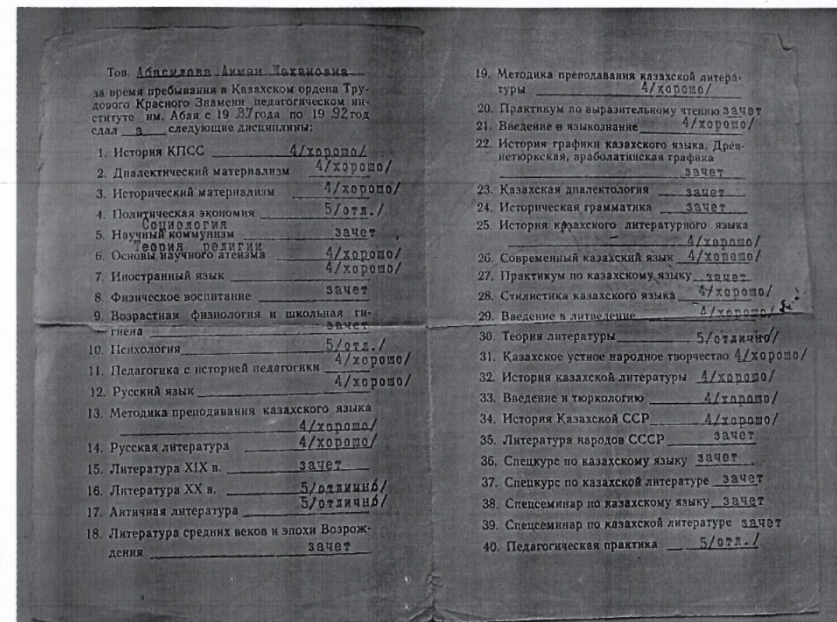 Тов. Абасилова Айман Жакановна
за время пребывания в Казахском ордена Тру-
дового Красного Знамени педагогическом ин-
ституте им. Абая с 19 87 года по 19 92 год
сдал а следующие дисциплины:
1. История КПСС 4/хорошо/
2. Диалектический материализм 4/хорошо/
3. Исторический материализм 4/хорошо/
4. Политическая экономия 5/отл./
Социология
5. Научный коммунизм зачет
Теория религии
6. Основы научного атеизма 4/хорошо/
7. Иностранный язык 4/хорошо/
8. Физическое воспитание зачет
9. Возрастная физиология и школьная ги-
гиена зачет
10. Психология 5/отл./
11. Педагогика с историей педагогики 4/хорошо/
12. Русский язык 4/хорошо/
13. Методика преподавания казахского языка
4/хорошо/
14. Русская литература 4/хорошо/
15. Литература XIX в. зачет
16. Литература XX в. 5/отлично/
17. Античная литература 5/отлично/
18. Литература средних веков и эпохи Возрож-
дения зачет
19. Методика преподавания казахской литера-
туры 4/хорошо/
20. Практикум по выразительному чтению зачет
21. Введение в языкознание 4/хорошо/
22. История графики казахского языка. Древ-
нетюркская, араболатинская графика
зачет
23. Казахская диалектология зачет
24. Историческая грамматика зачет
25. История казахского литературного языка
4/хорошо/
26. Современный казахский язык 4/хорошо/
27. Практикум по казахскому языку зачет
28. Стилистика казахского языка 4/хорошо/
29. Введение в литведение 4/хорошо/
30. Теория литературы 5/отлично/
31. Казахское устное народное творчество 4/хорошо/
32. История казахской литературы 4/хорошо/
33. Введение в тюркологию 4/хорошо/
34. История Казахской ССР 4/хорошо/
35. Литература народов СССР зачет
36. Спецкурс по казахскому языку зачет
37. Спецкурс по казахской литературе зачет
38. Спецсеминар по казахскому языку зачет
39. Спецсеминар по казахской литературе зачет
40. Педагогическая практика 5/отл./